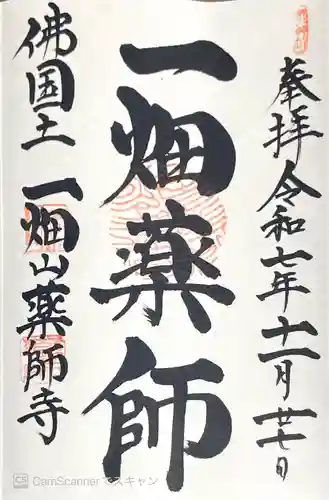 奉拝 令和七年十一月廿七日
一畑薬師
佛国土 一畑山薬師寺
CS CamScannerでスキャン